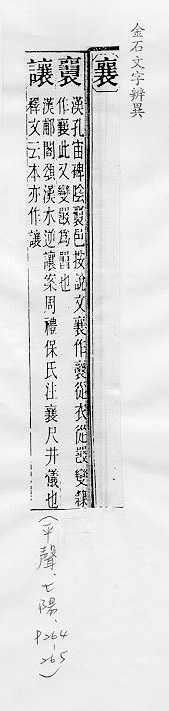 金石文字辨異
襄
襄
漢孔宙碑陰襄邑按說文襄作襄從衣從𤕦變隸
作襄此又變𤕦為㗊也
讓
漢郙閣頌漢水逆讓案周禮保氏注襄尺井儀也
釋文云本亦作讓
(平聲、七陽、P264-265)